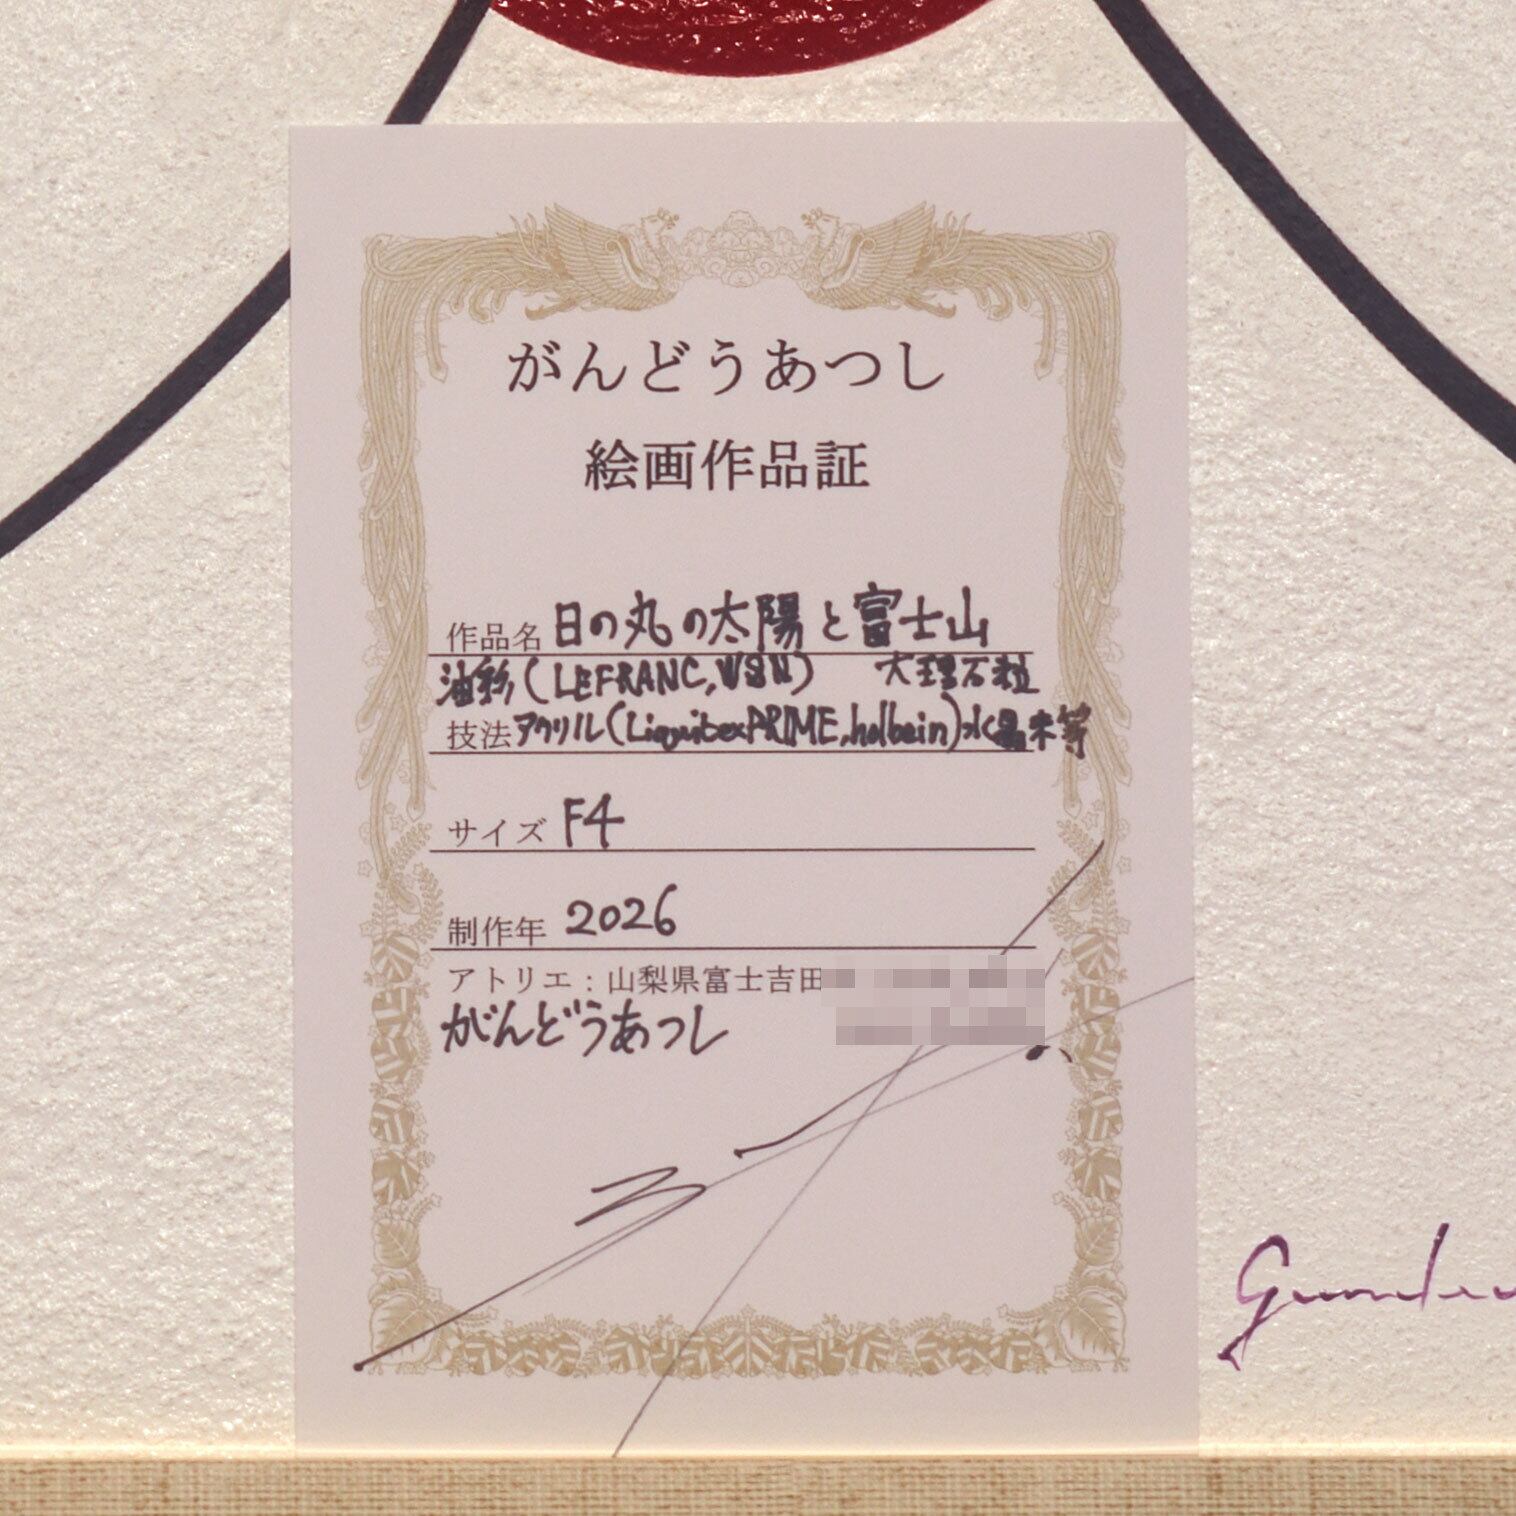 がんどうあつし
絵画作品証
作品名 日の丸の太陽と富士山
油彩(LEFRANC,W&N) 大理石粒
技法 アクリル(Liquitex PRIME,holbein)水晶末等
サイズ F4
制作年 2026
アトリエ：山梨県富士吉田
がんどうあつし